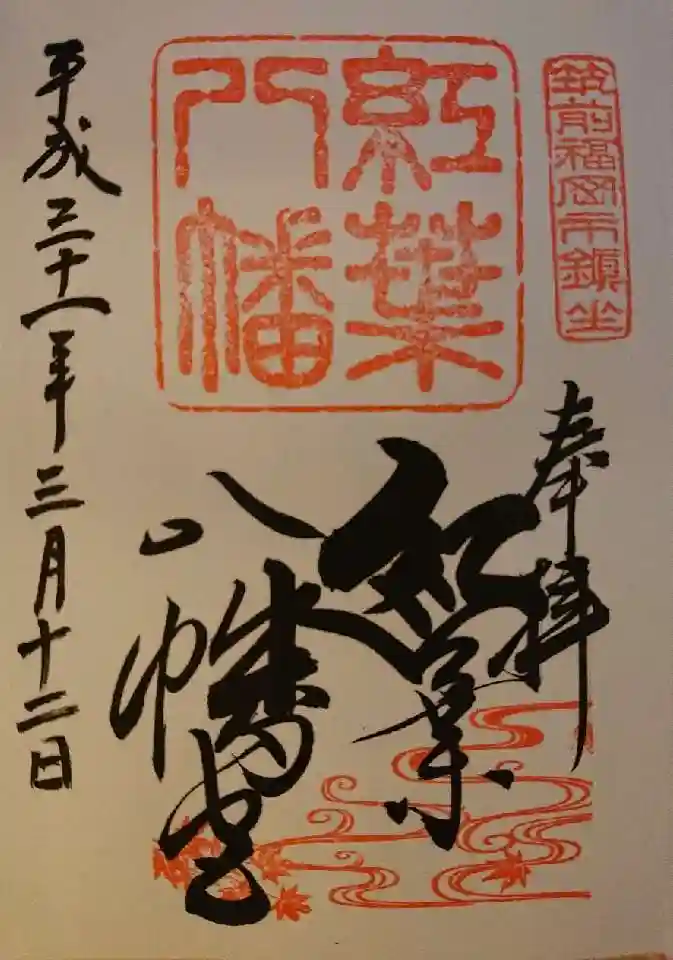 筑前福岡市鎮坐
奉拝
紅葉
八幡
紅葉
八幡宮
平成三十一年三月十二日